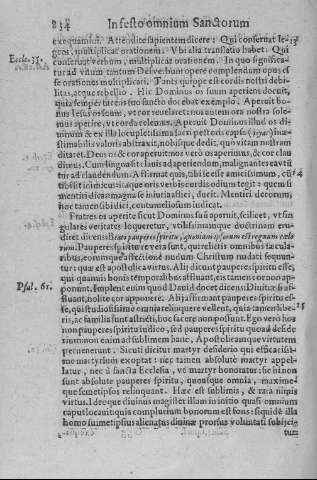 234 In festo omnium Sanctorum
exequamini. Attendite sapientem dicere: Qui conseruat le-
Eccle. 35. ges, multiplicat orationem. Vbi alia translatio habet: Qui
conseruat verbum, multiplicat orationem. In quo significa-
tur ad vitam tantum Dei verbum opere complendum opus es-
se orationis multiplicatione. Tanti quippe est cordis nostri debi-
litas, atque rebellio. Hic Dominus os suum aperiens docuit,
quia semper tacens suo sancto docebat exemplo. Aperuit bo-
nus Iesus os suum, vt reuelaret: nos autem ora nostra solo-
mus aperire, vt corda celemus. Aperuit Dominus illud os di-
uinum & ex illa locupletissima sacri pectoris capsa
stimabilis valoris abstraxit, nobisque dedit, quo vitam nostram
ditaret. Deus os & cor aperuit: nos vero os aperimus, & cor clau
dimus. Cum linguas it: laus ad aperiendum, malignantes
tur ad claudendum. Affirmat quis, tibi se esse amicissimum,
tibi sit inimicus: itaque oris verbis cordis odium tegit: quem si
mentiri dicas magna se iniuria affici, ducit. Mentiri decorum,
nec tamen sibi dici, contumeliosum iudicat.
Fratres os aperite sicut Dominus suum aperuit, scilicet, vt sin
gulares veritates loqueretur, vtilissimamque doctrinam eru-
diret dicens: Beati pauperes spiritu, quoniam ipsorum est regnum cœlo
rum. Pauperes spiritu re vera sunt, qui relictis omnibus sæcula-
ribus, eo omnique affectione nudum Christum nudati sequun-
tur: quæ est apostolica virtus. Alij dicunt pauperes spiritu esse,
qui quamuis bonis temporalibus affluant, eis tamen cor non ap-
Psal. 61. ponunt. Implent enim quod Dauid docet dicens: Diuitiæ si af-
fluant, nolite cor apponere. Alij affirmant pauperes spiritu es-
se, qui studiosissime omnia relinquere vellent, quia tamen libe-
ris, ac familia sunt astricti, hoc facere non possunt. Ego vero hos
non pauperes spiritu iudico, sed pauperes spiritu quoad deside
rium non enim ad sublimem hanc, Apostolicamque virtutem
peruenerunt. Sicuti dicitur martyr desiderio qui efficacissi-
me martyrium exoptat: nec tamen absolute martyr appel-
latur, nec à sancta Ecclesia, vt martyr honoratur: sic hi non
sunt absolute pauperes spiritu, quousque omnia, maxime-
que semetipsos relinquant. Hæc est sublimis, & rara nimis
virtus. Ideoque diuinus magister illam in initio quasi omnium
caput locauit: quis complurium bonorum est fons: siquidem illa
homo suimetipsius alienatus diuinæ prorsus voluntati subijcitur